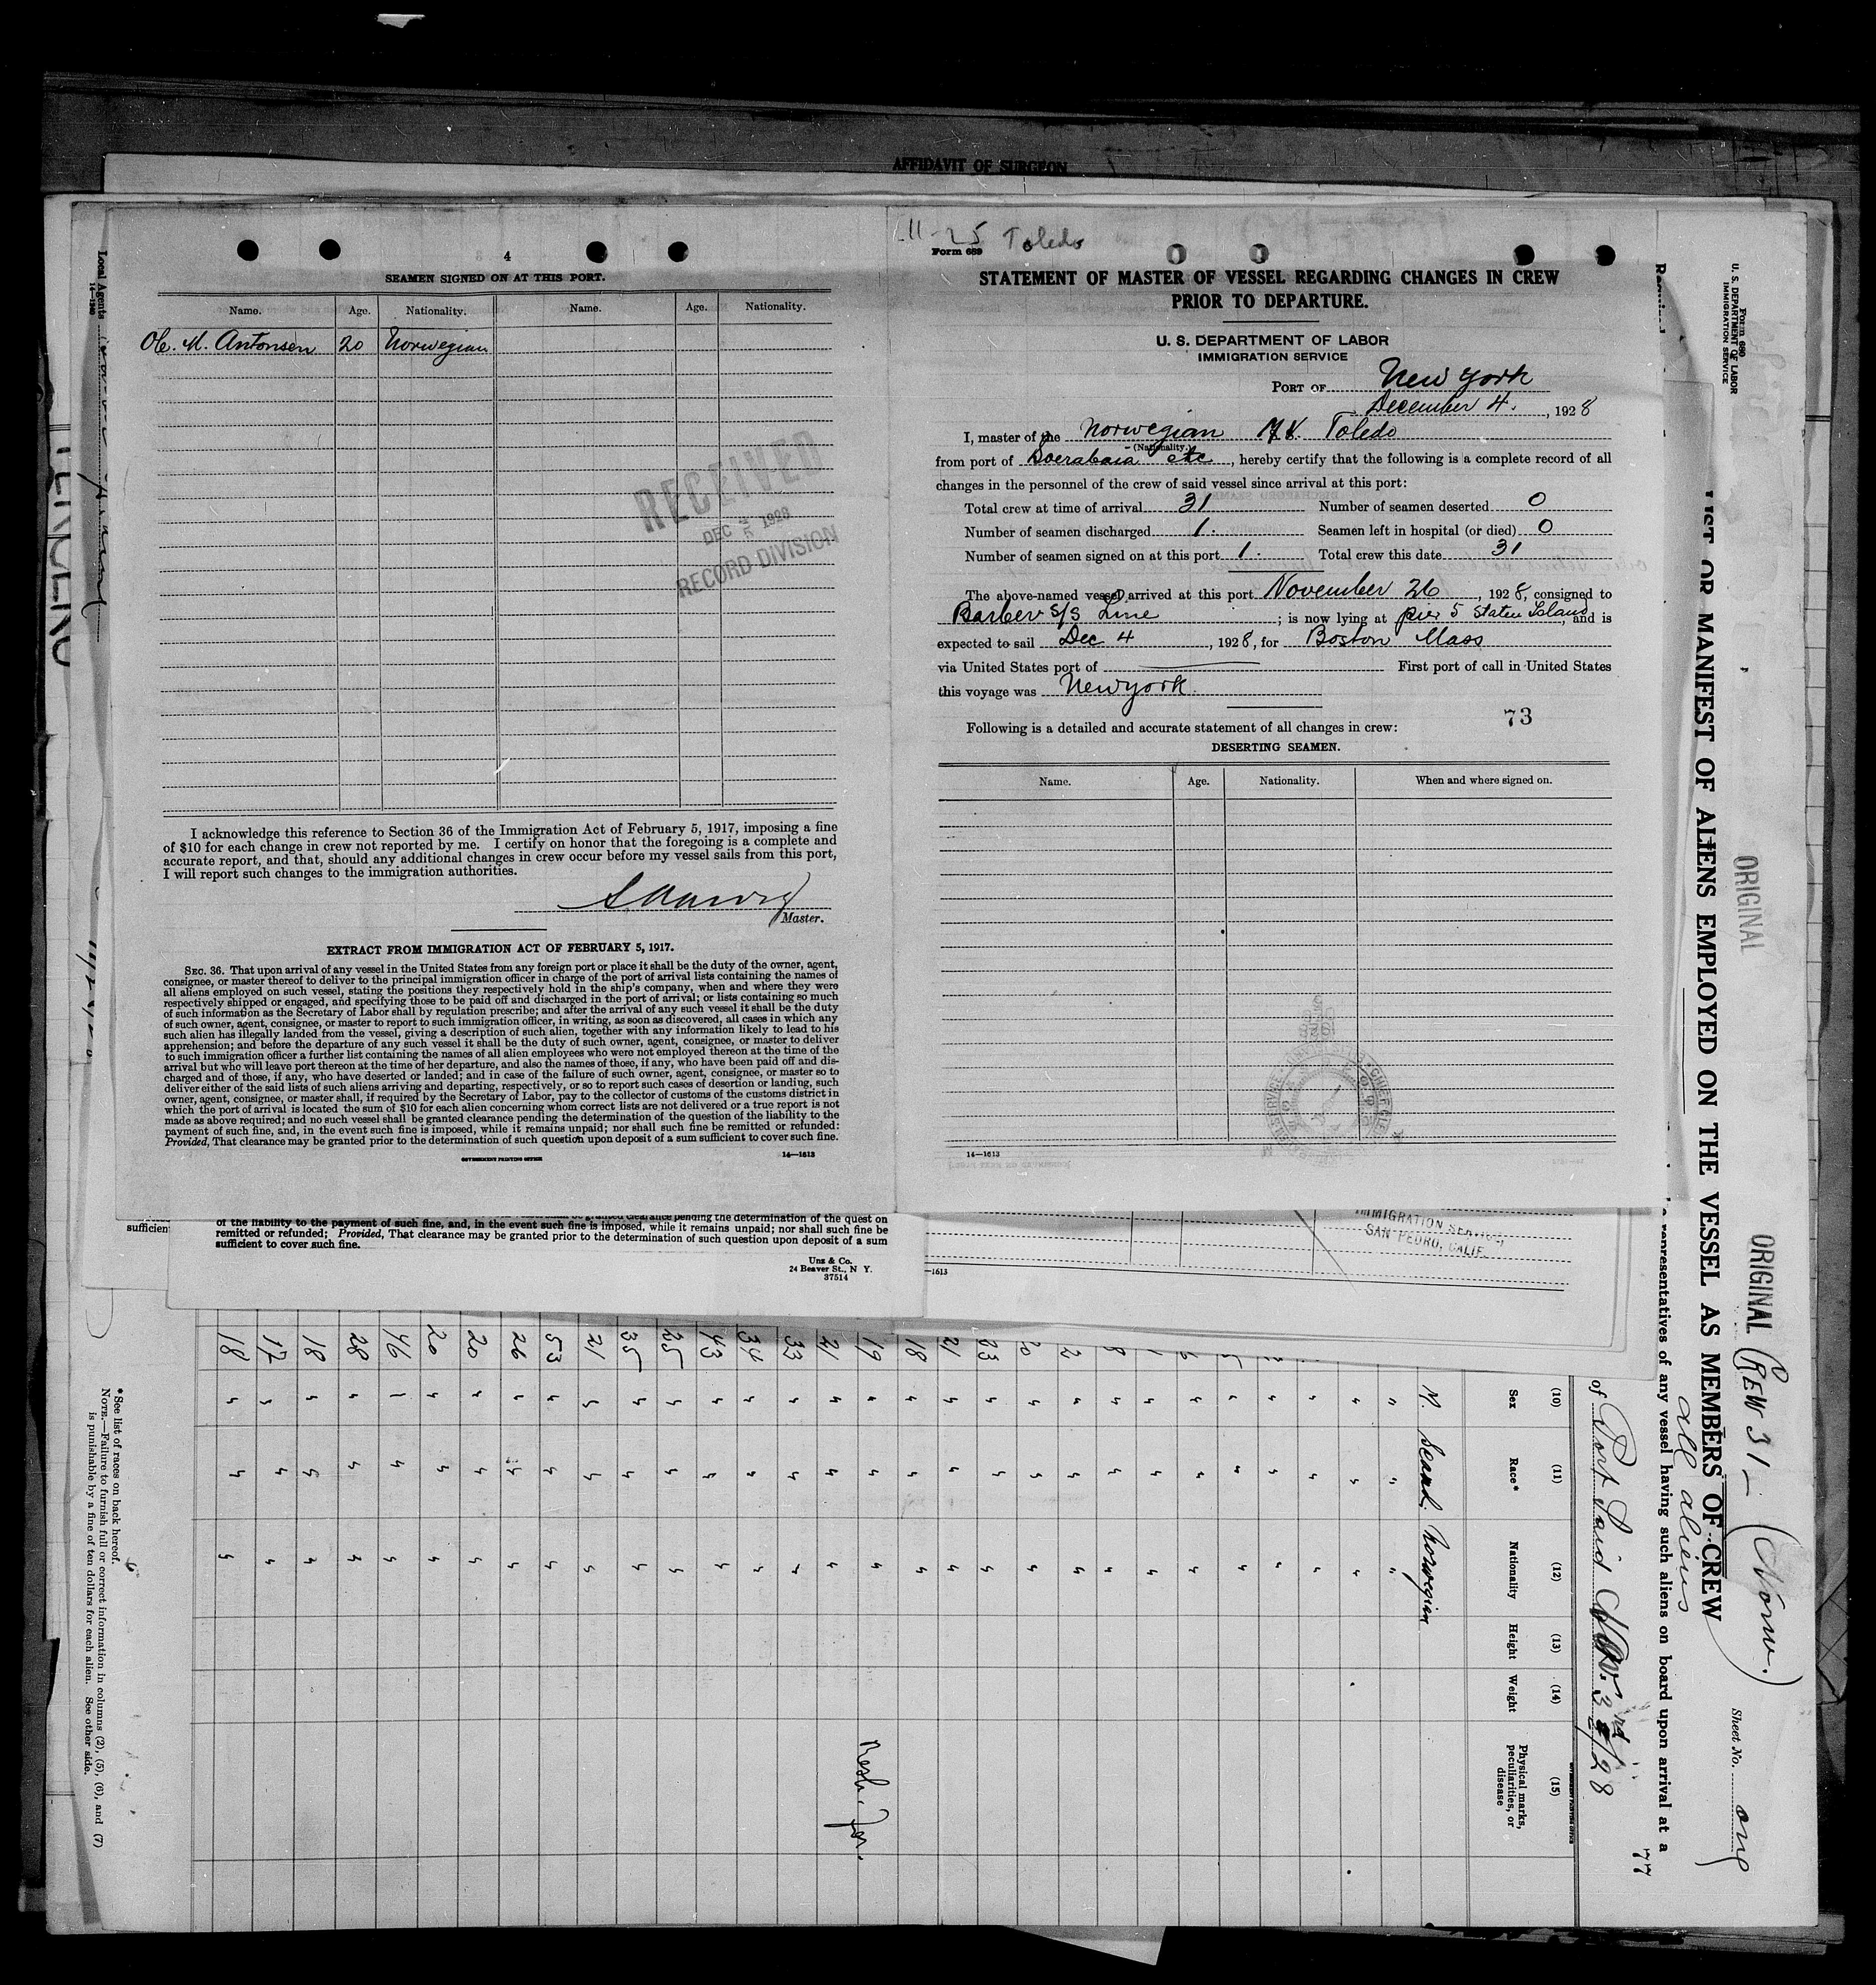 AFFIDAVIT OF SURGEON
4
SEAMEN SIGNED ON AT THIS PORT.
Name. Age. Nationality. Name. Age. Nationality.
Ole. M. Antonsen 20 Norwegian
RECEIVED
DEC 5 1928
RECORD DIVISION
I acknowledge this reference to Section 36 of the Immigration Act of February 5, 1917, imposing a fine
of $10 for each change in crew not reported by me. I certify on honor that the foregoing is a complete and
accurate report, and that, should any additional changes in crew occur before my vessel sails from this port,
I will report such changes to the immigration authorities.
Master.
EXTRACT FROM IMMIGRATION ACT OF FEBRUARY 5, 1917.
SEC. 36. That upon arrival of any vessel in the United States from any foreign port or place it shall be the duty of the owner, agent,
consignee, or master thereof to deliver to the principal immigration officer in charge of the port of arrival lists containing the names of
all aliens employed on such vessel, stating the positions they respectively hold in the ship's company, when and where they were
respectively shipped or engaged, and specifying those to be paid off and discharged in the port of arrival; or lists containing so much
of such information as the Secretary of Labor shall by regulation prescribe; and after the arrival of any such vessel it shall be the duty
of such owner, agent, consignee, or master to report to such immigration officer, in writing, as soon as discovered, all cases in which any
such alien has illegally landed from the vessel, giving a description of such alien, together with any information likely to lead to his
apprehension; and before the departure of any such vessel it shall be the duty of such owner, agent, consignee, or master to deliver
to such immigration officer a further list containing the names of all alien employees who were not employed thereon at the time of the
arrival but who will leave port thereon at the time of her departure, and also the names of those, if any, who have been paid off and dis-
charged and of those, if any, who have deserted or landed; and in case of the failure of such owner, agent, consignee, or master so to
deliver either of the said lists of such aliens arriving and departing, respectively, or so to report such cases of desertion or landing, such
owner, agent, consignee, or master shall, if required by the Secretary of Labor, pay to the collector of customs of the customs district in
which the port of arrival is located the sum of $10 for each alien concerning whom correct lists are not delivered or a true report is not
made as above required; and no such vessel shall be granted clearance pending the determination of the question of the liability to the
payment of such fine, and, in the event such fine is imposed, while it remains unpaid; nor shall such fine be remitted or refunded:
Provided, That clearance may be granted prior to the determination of such question upon deposit of a sum sufficient to cover such fine.
GOVERNMENT PRINTING OFFICE 14—1613
11-25 Toledo
Form 689
STATEMENT OF MASTER OF VESSEL REGARDING CHANGES IN CREW
PRIOR TO DEPARTURE.
U. S. DEPARTMENT OF LABOR
IMMIGRATION SERVICE
PORT OF New York
December 4. , 1928
I, master of the Norwegian M.V. Toledo
(Nationality.)
from port of Soerabaia etc , hereby certify that the following is a complete record of all
changes in the personnel of the crew of said vessel since arrival at this port:
Total crew at time of arrival 31 Number of seamen deserted 0
Number of seamen discharged 1. Seamen left in hospital (or died) 0
Number of seamen signed on at this port 1. Total crew this date 31
The above-named vessel arrived at this port November 26 , 1928, consigned to
Barber S/S Line ; is now lying at pier 5 Staten Island, and is
expected to sail Dec 4 , 1928, for Boston Mass
via United States port of First port of call in United States
this voyage was New york.
Following is a detailed and accurate statement of all changes in crew: 73
DESERTING SEAMEN.
Name. Age. Nationality. When and where signed on.
14—1613
sufficien
of the liability to the payment of such fine, and, in the event such fine is imposed, while it remains unpaid; nor shall such fine be
remitted or refunded; Provided, That clearance may be granted prior to the determination of such question upon deposit of a sum
sufficient to cover such fine.
Unz & Co.
24 Beaver St., N Y.
37514
—1613
IMMIGRATION SERVICE,
SAN PEDRO, CALIF.
Local Agents
14—1240
Form 680
U. S. DEPARTMENT OF LABOR
IMMIGRATION SERVICE
ORIGINAL
ORIGINAL Crew 31 — (Norw.)
Sheet No. one
LIST OR MANIFEST OF ALIENS EMPLOYED ON THE VESSEL AS MEMBERS OF CREW
all aliens
representatives of any vessel having such aliens on board upon arrival at a
77
of Port Said Nov. 3rd/28
(10) (11) (12) (13) (14) (15)
Sex Race* Nationality Height Weight Physical marks, peculiarities, or disease
M. Scand. Norwegian
23
21
18
19
21
33
34
43
25
35
21
53
26
20
20
46
28
18
17
18
* See list of races on back hereof.
NOTE.—Failure to furnish full or correct information in columns (2), (5), (6), and (7)
is punishable by a fine of ten dollars for each alien. See other side.